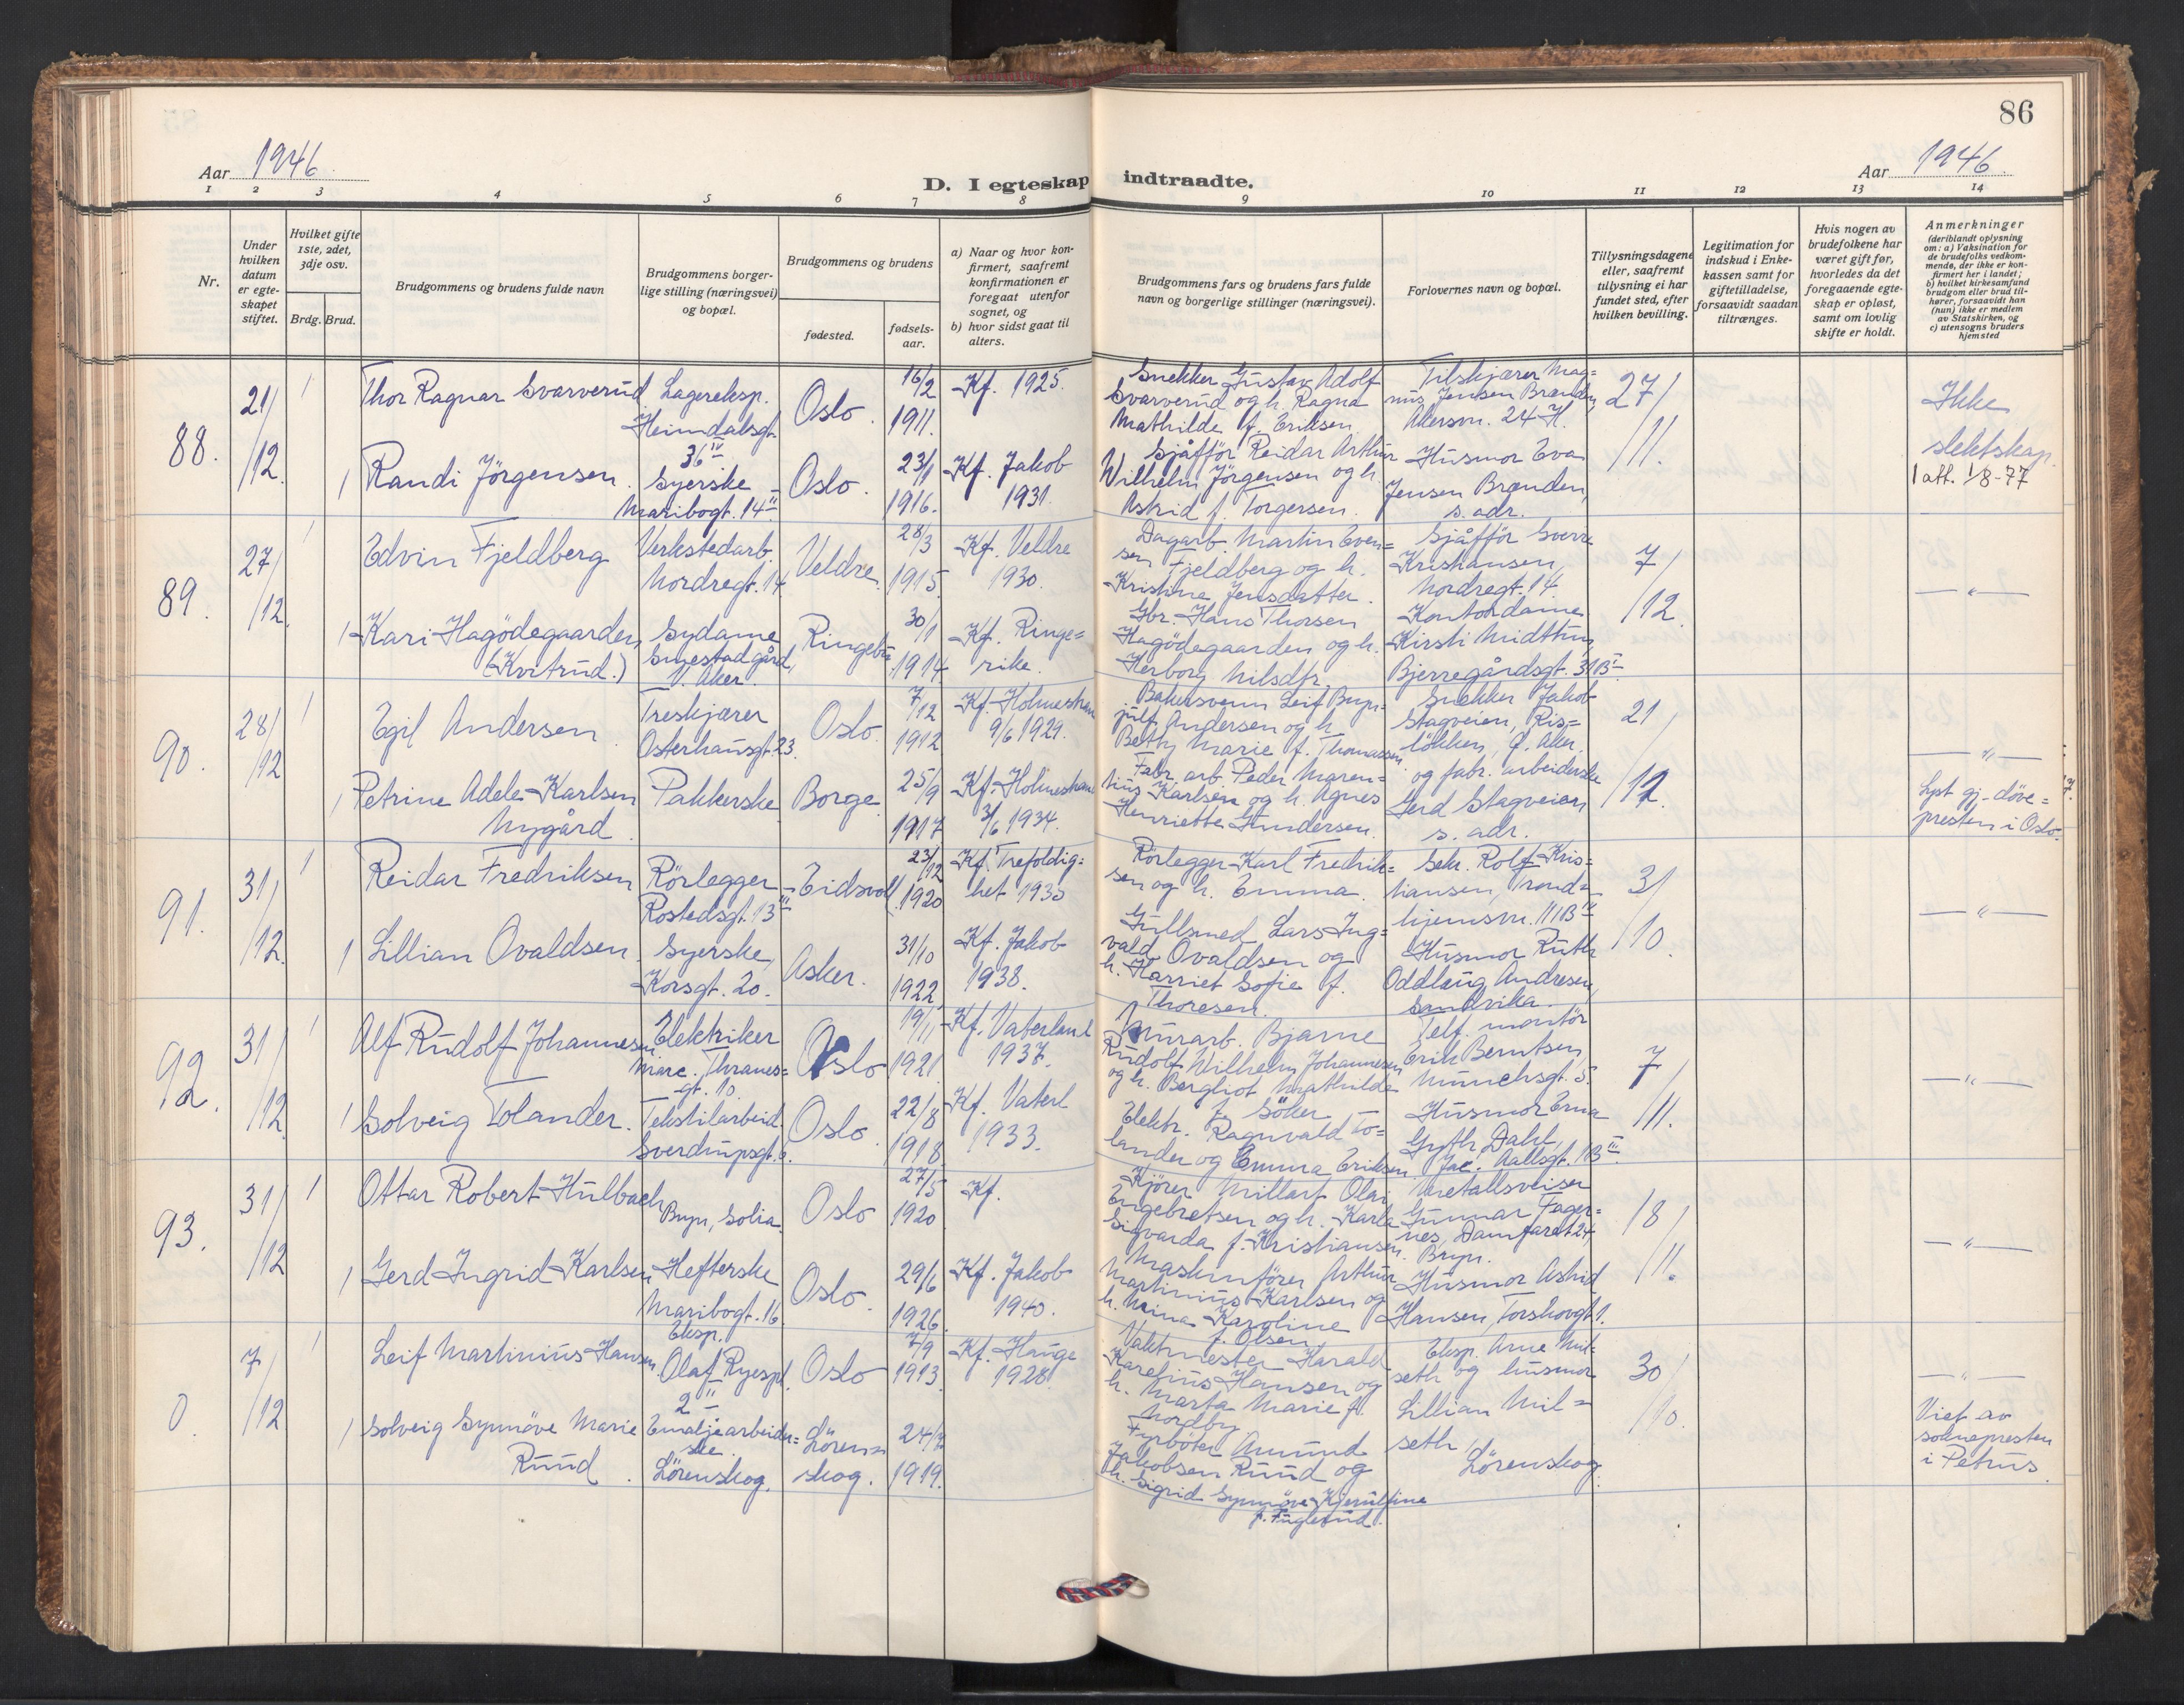 86
Aar 1946.
D. I egteskap indtraadte.
Aar 1946.
1 2 3 4 5 6 7 8 9 10 11 12 13 14
Nr.
Under
hvilken
datum
er egte-
skapet
stiftet.
Hvilket gifte
1ste, 2det,
3dje osv.
Brdg. Brud.
Brudgommens og brudens fulde navn
Brudgommens borger-
lige stilling (næringsvei)
og bopæl.
Brudgommens og brudens
fødested.
fødsels-
aar.
a) Naar og hvor kon-
firmert, saafremt
konfirmationen er
foregaat utenfor
sognet, og
b) hvor sidst gaat til
alters.
Brudgommens fars og brudens fars fulde
navn og borgerlige stillinger (næringsvei).
Forlovernes navn og bopæl.
Tillysningsdagene
eller, saafremt
tillysning ei har
fundet sted, efter
hvilken bevilling.
Legitimation for
indskud i Enke-
kassen samt for
giftetilladelse,
forsaavidt saadan
tiltrænges.
Hvis nogen av
brudefolkene har
været gift før,
hvorledes da det
foregaaende egte-
skap er opløst,
samt om lovlig
skifte er holdt.
Anmerkninger
(deriblandt oplysning
om: a) Vaksination for
de brudefolks vedkom-
mende, der ikke er kon-
firmert her i landet;
b) hvilket kirkesamfund
brudgom eller brud til-
hører, forsaavidt han
(hun) ikke er medlem
av Statskirken, og
c) utensogns bruders
hjemsted
88.
21/
/12.
1
Thor Ragnar Svarverud
Lagereksp.
Heimdalsgt.
36 IV
Oslo.
16/2
1911.
Kf. 1925.
Snekker Gustav Adolf
Svarverud og h. Ragna
Mathilde f. Eriksen
Tilskjærer Mag=
nus Jensen Brænden,
Akersvn. 24 H.
27/
/11.
Ikke
slektskap.
1 att. 1/8-77
1
Randi Jörgensen.
Syerske
Maribogt. 14 II
Oslo.
23/1
1916.
Kf. Jakob
1931.
Sjåffør Reidar Arthur
Wilhelm Jörgensen og h.
Astrid f. Torgersen.
Husmor Eva
Jensen Brænden,
s. adr.
89.
27/
/12.
1
Edvin Fjeldberg
Verkstedarb.
Nordregt. 14
Veldre
28/3
1915.
Kf. Veldre
1930.
Dagarb. Martin Even=
sen Fjeldberg og h.
Kristine Jensdatter.
Sjåffør Sverre
Kristiansen,
Nordregt. 14
7/
/12.
— " —
1
Kari Hagödegaarden
(Kvitrud.)
Sydame
Smestad gård,
V. Aker.
Ringebu
30/1
1914
Kf. Ringe=
rike.
Gbr. Hans Thorsen
Hagödegaarden og h.
Herborg Nilsdtr.
Kontordame
Kirsti Midttun,
Bjerregårdsgt. 31 B I
90.
28/
/12
1
Egil Andersen
Treskjærer
Osterhausgt. 23.
Oslo.
7/12
1912
Kf. Holmestran
9/6 1929.
Bakersvenn Leif Bryn=
julf Andersen og h.
Betty Marie f. Thomassen
Snekker Jakob
Stagveien, Ris=
løkken, Ø. Aker.
21/
/12.
— " —
1
Petrine Adele Karlsen
Nygård.
Pakkerske
Borge
25/9
1917
Kf. Holmestran
3/6 1934.
Fabr. arb. Peder Maren=
tius Karlsen og h. Agnes
Henriette Gundersen.
og fabr. arbeiderske
Gerd Stagveien
s. adr.
Lyst gj. döve=
presten i Oslo.
91.
31/
/12.
1
Reidar Fredriksen
Rörlegger
Rostedsgt. 13 III
Eidsvoll
23/12
1920
Kf. Trefoldig=
het 1935
Rörlegger Karl Fredrik=
sen og h. Emma
Sekr. Rolf Kris=
tiansen, Trond=
hjemsvn. 111 B IV
3/
/10.
— " —
1
Lillian Ovaldsen.
Syerske,
Korsgt. 20.
Asker.
31/10
1922
Kf. Jakob
1938.
Gullsmed Lars Ing=
vald Ovaldsen og
h. Harriet Sofie f.
Thoresen.
Husmor Ruth
Oddlaug Andresen,
Sandvika.
92.
31/
/12.
1
Alf Rudolf Johannesen.
Elektriker
Marc. Thranes=
gt. 10.
Oslo
19/11
1921.
Kf. Vaterland
1937.
Murarb. Bjarne
Rudolf Wilhelm Johannesen
og h. Bergliot Mathilde
f. Söker
Telf. montör
Erik Berntsen,
Munchsgt. 5.
7/
/11.
— " —
1
Solveig Tolander.
Tekstilarbeid.
Sverdrupsgt. 6.
Oslo.
22/8
1918.
Kf. Vaterl
1933.
Elektr. Ragnvald To=
lander og Emma Eriksen
Husmor Erna
Gyth Dahl,
Jac. Aallsgt. 1 B III.
93.
31/
/12
1
Ottar Robert Hulbach
Bryn, Solia
Oslo
27/5
1920
Kf.
Kjörer Millarf Olai
Engebretsen og h. Karla
Sigvarda f. Kristiansen.
Metallsveiser
Gunnar Fager=
nes, Damfaret 24
Bryn.
18/
/11.
— " —
1
Gerd Ingrid Karlsen
Hefterske
Maribogt. 16.
Oslo.
29/6
1926.
Kf. Jakob
1940.
Maskinfører Arthur
Martinius Karlsen og
h. Mina Karoline
f. Olsen
Husmor Astrid
Hansen, Torshovgt. 1.
0
7/
/12
1
Leif Martinius Hansen
Eksp.
Olaf Ryespl.
2 II
Oslo
7/9
1913.
Kf. Hauge
1928.
Vaktmester Harald
Karelius Hansen og
h. Marta Marie f.
Nordby
Eksp. Arne Mil=
seth og husmor
Lillian Mil=
seth,
Lörenskog.
30/
/10.
— " —
Viet av
sokneprestn
i Petrus.
1
Solveig Synnöve Marie
Ruud.
Emaljearbeider=
ske.
Lörenskog.
Lören=
skog.
24/3
1919.
Fyrböter Amund
Jakobsen Ruud og
h. Sigrid Synnöve Kjerulfine
f. Fuglerud.